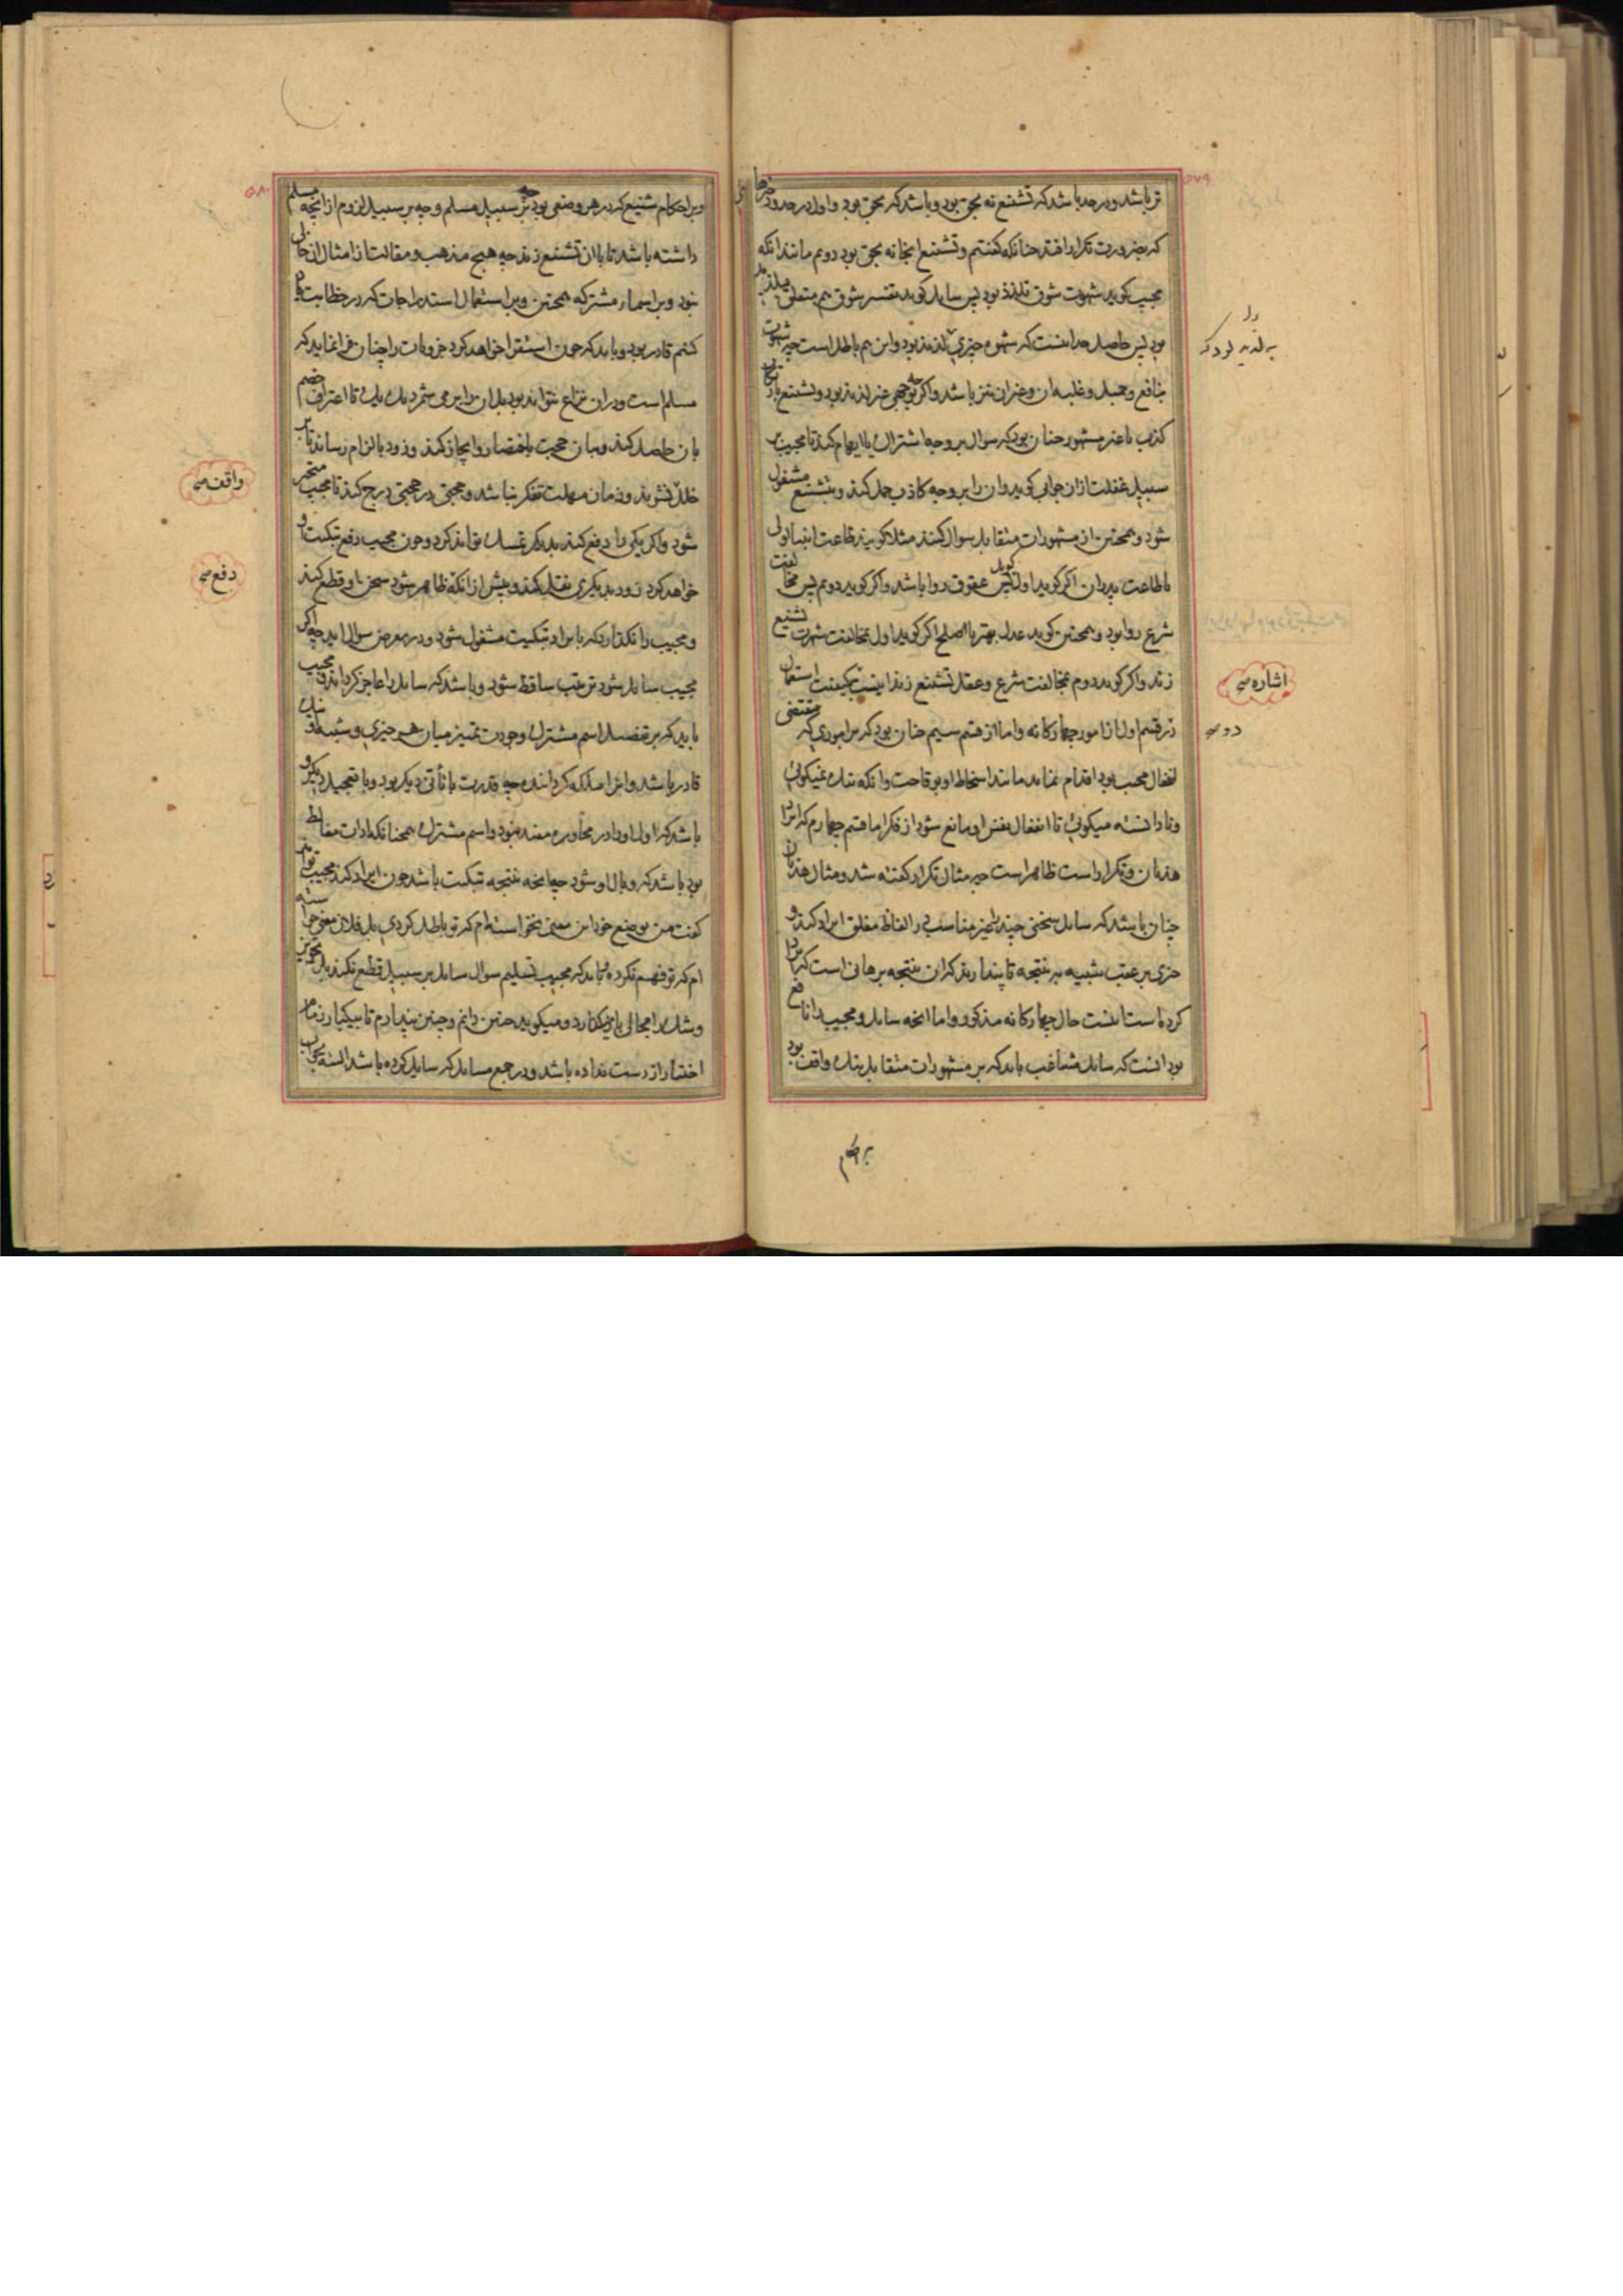 تر باشد و در حد باشد که تشنیع نه بحق بود و باشد که بحق بود و اول در حدود
که بضرورت تکرار افتد چنانکه گفتیم و تشنیع انجا نه بحق بود دوم مانند انکه
مجیب کوید شهوت شوق تلذذ بود پس سایل کوید شوق هم متعلق
بود پس حاصل حد اینست که شهوة چیزی لذیذ بود و این هم باطل است چه شهوت
بنافع و جمیل و غلبه ان و غیر ان نیز باشد و اکر چه غیر لذیذ بود و تشنیع
کذب یا غیر مشهور چنان بود که سوال بر وجه اشتراک یا ایهام کند تا مجیب بر
سبیل غفلت ازان جوابی کوید و ان را بر وجه کاذب حمل کند و بتشنیع مشغول
شود و همچنین از مشهورات متقابل سوال کنند مثلا کویند طاعت انبیا اولی
یا طاعت پدران اکر کوید اول کوید پس عقوق روا باشد و اکر کوید دوم پس مخالفت
شرع روا بود و همچنین کوید عدل بهتر یا اصلح اکر کوید اول بمخالفت شهرت تشنیع
زند و اکر کوید دوم بمخالفت شرع و عقل تشنیع زند اینست کیفیت استعمال
قسم اول از امور چهارکانه و اما از قسم سیم چنان بود که بر اموری که مقتضی
انفعال مجیب بود اقدام نماید مانند اسخاط او بوقاحت و انکه نیک نمیکوئی
و نا دانسته میکوئی تا انفعال نفس او مانع شود از فکر اما قسم چهارم که ایراد
هذیان و تکرار است ظاهر است چه مثال تکرار کفته شد و مثال هذیان
چنان باشد که سایل سخنی چند غیر مناسب در الفاظ مغلق ایراد کند و
چیزی بر عقب شبیه به نتیجه تا پندارند که ان نتیجه برهانی است که ایراد
کرده است اینست حال چهارکانه مذکور و اما انچه سایل و مجیب را نافع
بود انست که سایل مشاغب باید که بر مشهورات متقابل نیک واقف بود
بر احکام
اشاره
دوم
و بر احکام شنیع که در هر وضعی بود نه بر سبیل مسلم و چه بر سبیل لزوم از انچه مسلم
داشته باشد تا با ان تشنیع زند چه هیچ مذهب و مقالت از امثال ان خالی
نبود و بر اسماء مشترکه همچنین و بر استعمال استدراجات که در خطابت یاد
کنیم قادر بود و باید که چون استقرا خواهد کرد جزویات را چنان فرا نماید که
مسلم است و دران نزاع نتواند بود بل ان را بر می شمرد یک یک تا اعتراف خصم
بان حاصل کند و بیان حجت باختصار و ایجاز کند و زود بالزام رساند تا
خلل نشود و زمان مهلت تفکر نباشد و حجتی در حجتی درج کند تا مجیب متحیر
شود و اکر یکی را دفع کند بدیکر تمسک تواند کرد و چون مجیب رفع تبکیت او
خواهد کرد زود بدیکری نقل کند و پیش از انکه ظاهر شود سخن او قطع کند
و مجیب را نکذارد که بایراد تبکیت مشغول شود و در معرض سوال اید چه اکر
مجیب سایل شود ترتیب ساقط شود و باشد که سایل را عاجز کرداند و مجیب
باید که بر تفصیل اسم مشترک و جودت تمییز میان هر چیزی و شبیه او نیک
قادر باشد و انرا ملکه کردانیده چه قدرت با تأنی دیکر بود و با تعجیل دیکر و
باشد که اول او را در محاوره مفید نبود و اسم مشترک همچنانکه ادات مغالط
بود باشد که وبال او شود چه انچه نتیجه تبکیت باشد چون ایراد کند مجیب تواند
کفت من بوضع خود این معنی نخواسته ام که تو باطل کردی بل فلان معنی خواسته
ام که تو فهم نکرده و باید که مجیب تسلیم سوال سایل بر سبیل قطع نکند بل
و شک را مجالی باز کذارد و میکوید چنین دانم و چنین پندارم تا بیکبار زمام
اختیار از دست نداده باشد و در جمع مسایل که سایل کرده باشد البته جواب
واقف
دفع